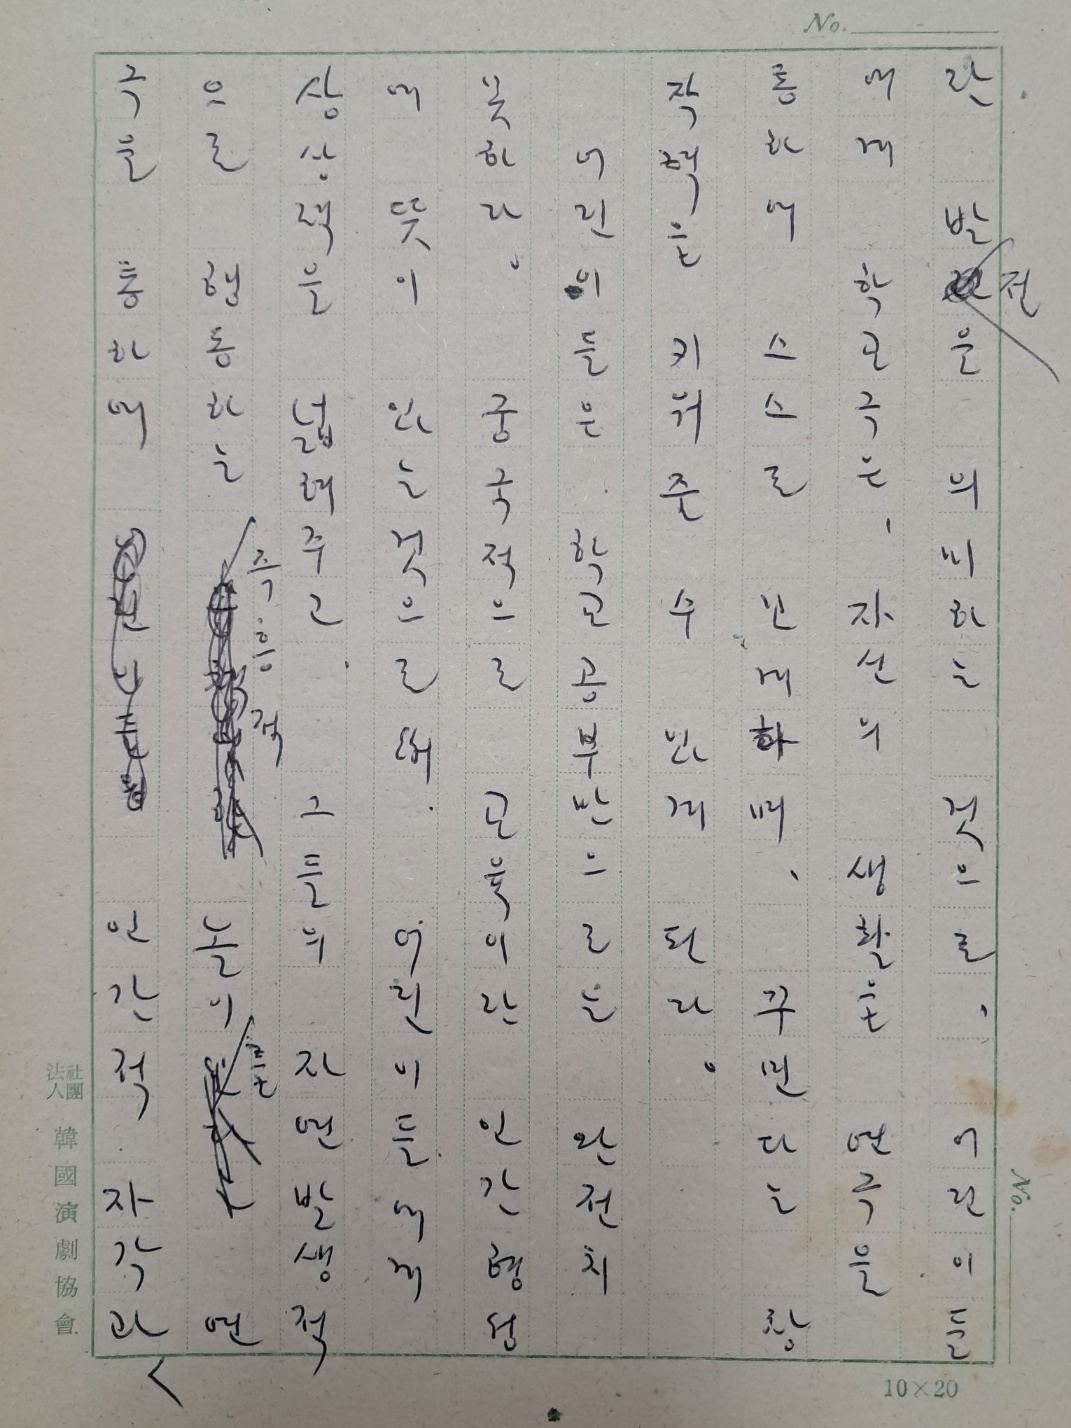 No.
란 발전은 의미하는 것으로, 어린이들
에게 학교극은, 자신의 생활을 연극을
통하여 스스로 낸게하며, 꾸민다는 창
작력은 키워준 수 있게 된다.
어린이들은 학교공부만으로는 완전치
못하다. 궁국적으로 교육이란 인간형성
에 뜻이 있는 것으로써, 어린이들에게
상상력을 넓혀주고, 그들의 자연발생적
으로 행동하는 즉흥적 놀이 또는 연
극을 통하여 인간적 자각과
社團
法人
韓國演劇協會
No.
10×20